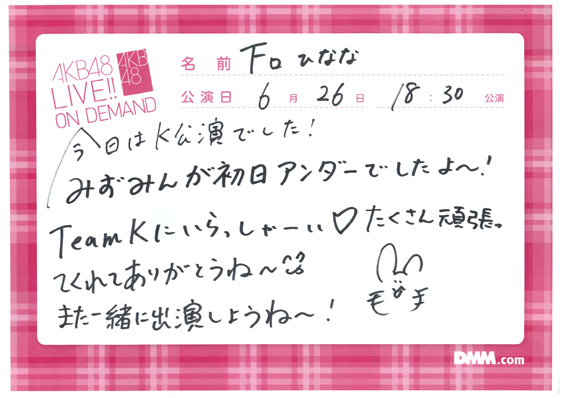 AKB48
LIVE!!
ON DEMAND
AKB
48
名前 下口ひなな
公演日 6月26日 18:30公演
今日はK公演でした!
みずみんが初日アンダーでしたよ〜!
TeamKにいらっしゃーい♡たくさん頑張っ
てくれてありがとうね〜
また一緒に出演しようね〜!
DMM.com